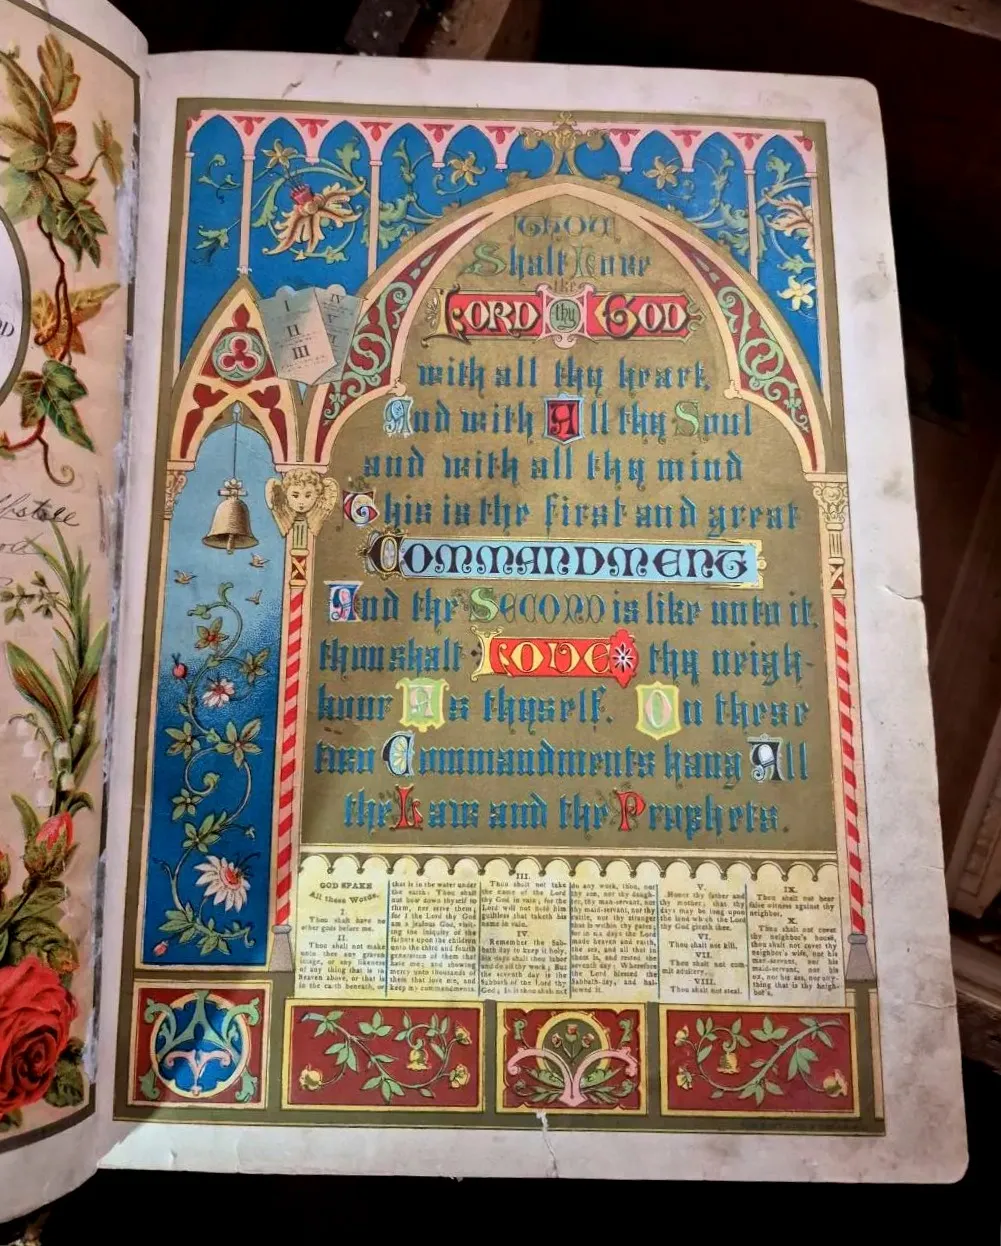 Thou
Shalt Love
the
LORD thy GOD
with all thy heart,
And with All thy Soul
and with all thy mind
This is the first and great
COMMANDMENT
And the SECOND is like unto it,
thou shalt LOVE thy neigh-
bour As thyself. On these
two Commandments hang All
the Law and the Prophets.
I
II
III
IV
V
GOD SPAKE
All these Words,
I.
Thou shalt have no
other gods before me.
II.
Thou shalt not make
unto thee any graven
image, or any likeness
of any thing that is in
heaven above, or that is
in the earth beneath, or
that is in the water under
the earth: Thou shalt
not bow down thyself to
them, nor serve them;
for I the Lord thy God
am a jealous God, visit-
ing the iniquity of the
fathers upon the children
unto the third and fourth
generation of them that
hate me; and showing
mercy unto thousands of
them that love me, and
keep my commandments.
III.
Thou shalt not take
the name of the Lord
thy God in vain; for the
Lord will not hold him
guiltless that taketh his
name in vain.
IV.
Remember the Sab-
bath day to keep it holy.
Six days shalt thou labor
and do all thy work; But
the seventh day is the
Sabbath of the Lord thy
God; In it thou shalt not
do any work, thou, nor
thy son, nor thy daugh-
ter, thy man-servant, nor
thy maid-servant, nor thy
cattle, nor thy stranger
that is within thy gates;
for in six days the Lord
made heaven and earth,
the sea, and all that in
them is, and rested the
seventh day: Wherefore
the Lord blessed the
Sabbath-day, and hal-
lowed it.
V.
Honor thy father and
thy mother; that thy
days may be long upon
the land which the Lord
thy God giveth thee.
VI.
Thou shalt not kill.
VII.
Thou shalt not com-
mit adultery.
VIII.
Thou shalt not steal.
IX.
Thou shalt not bear
false witness against thy
neighbor.
X.
Thou shalt not covet
thy neighbor's house,
thou shalt not covet thy
neighbor's wife, nor his
man-servant, nor his
maid-servant, nor his
ox, nor his ass, nor any-
thing that is thy neigh-
bor's.